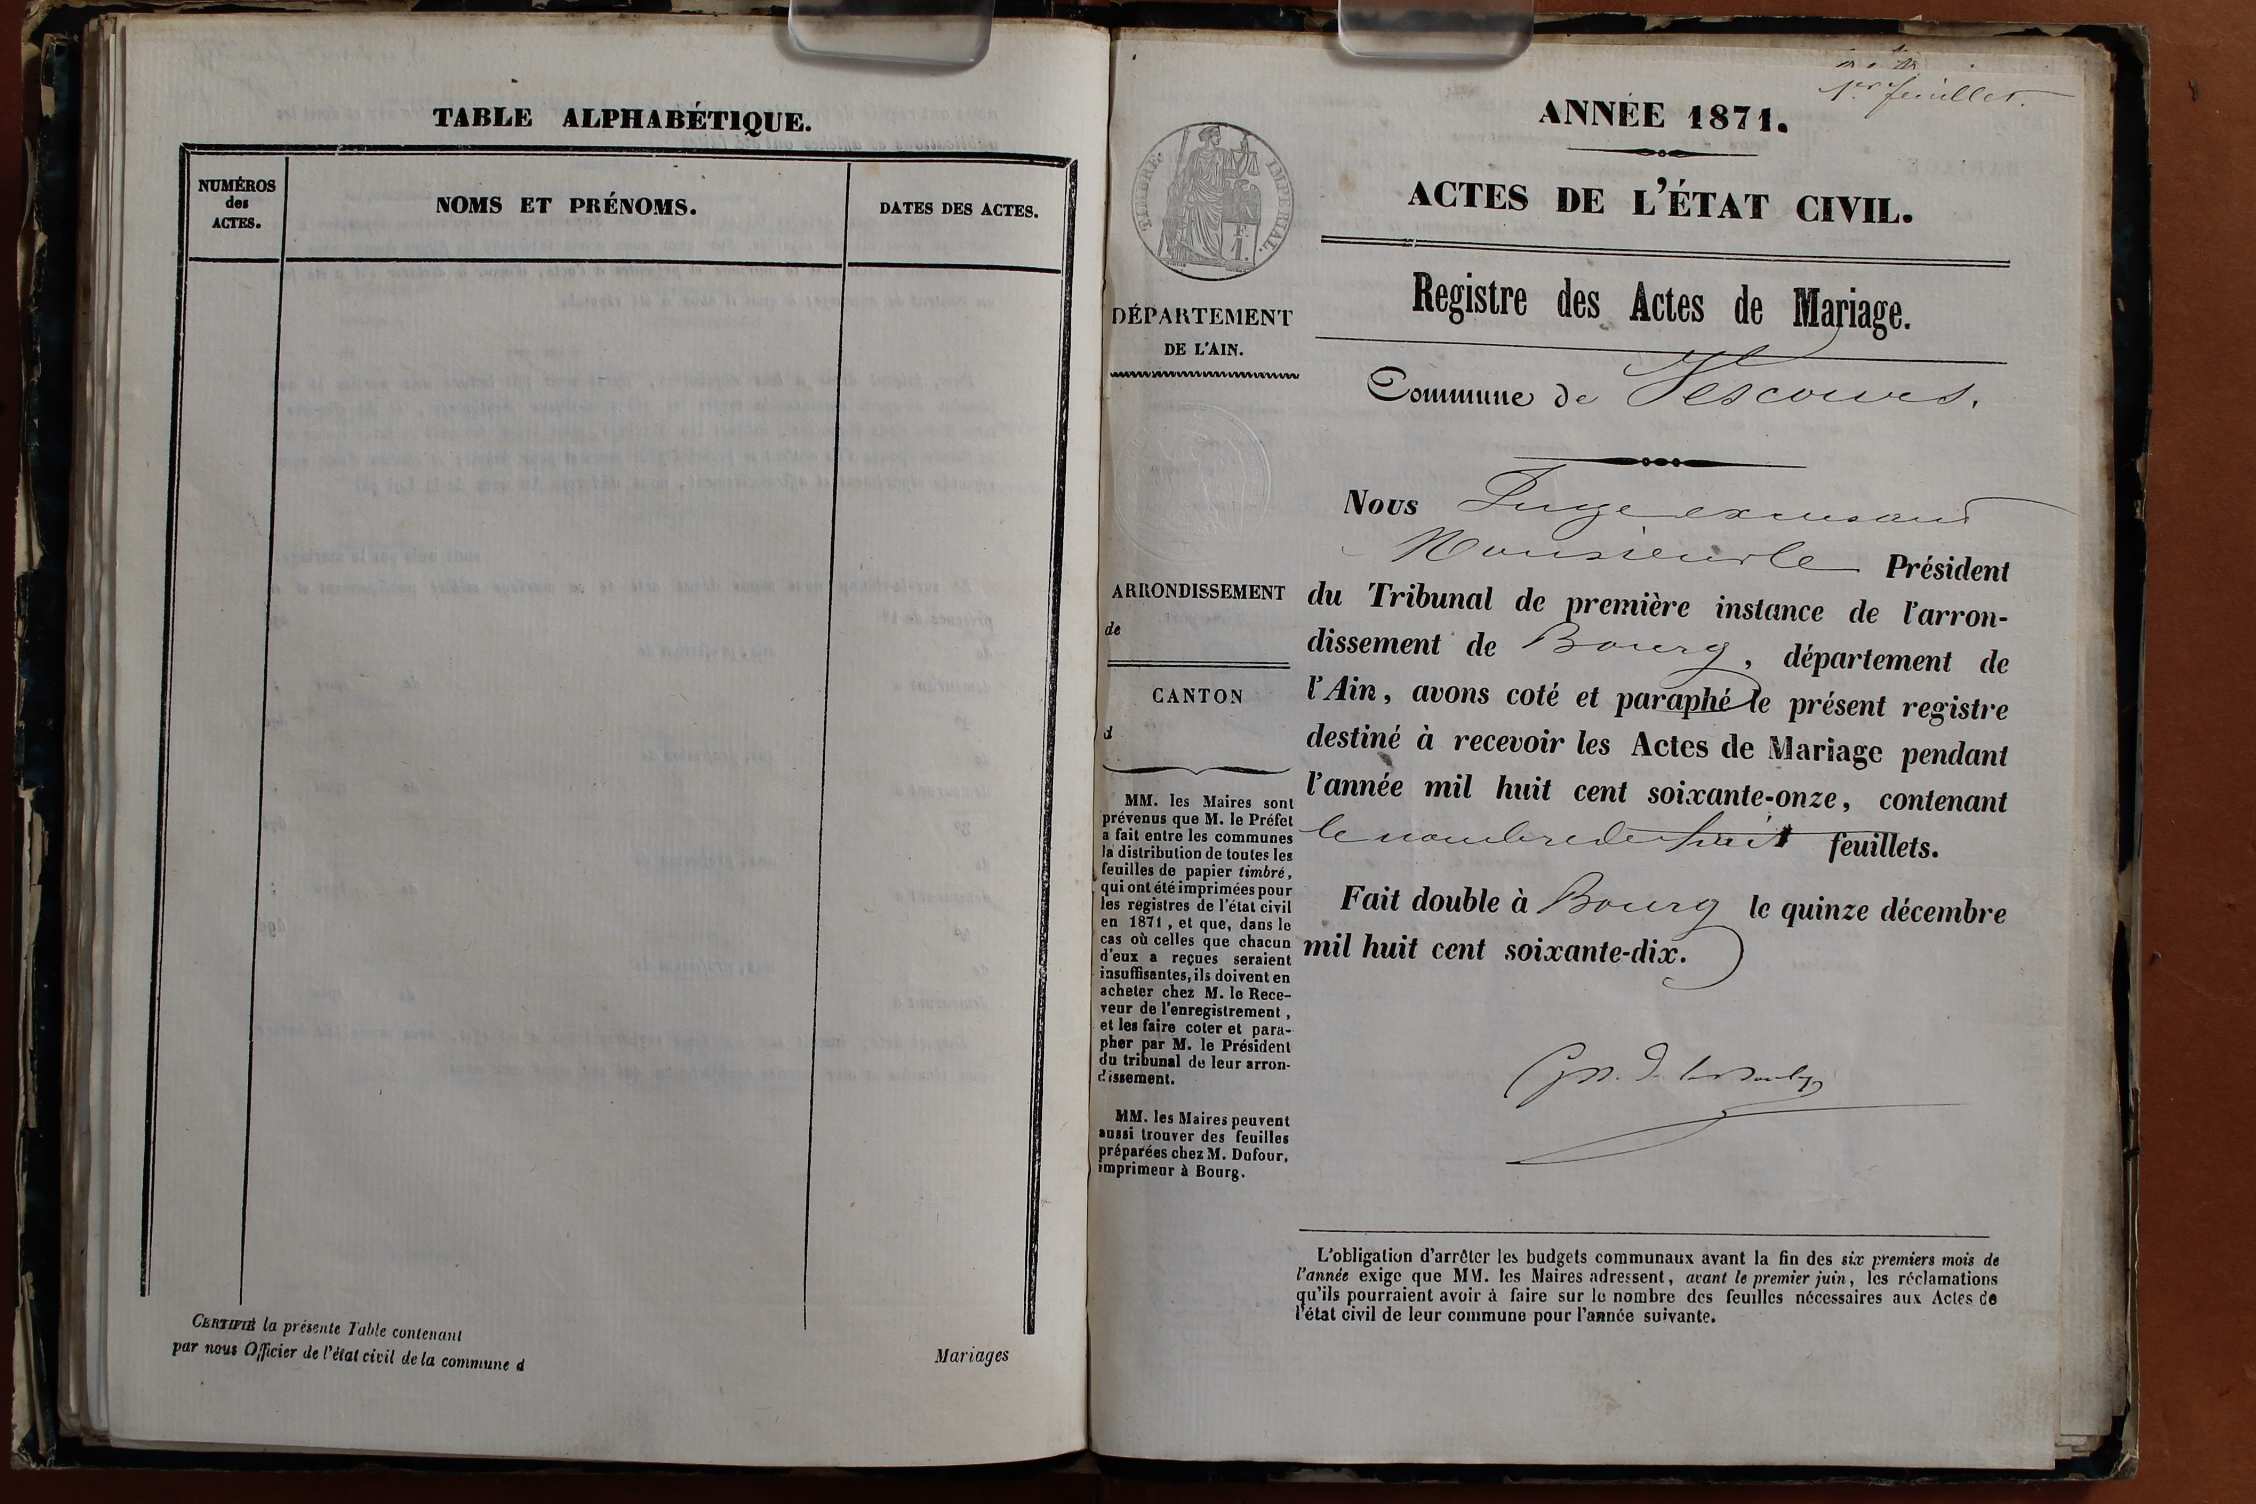 TABLE ALPHABÉTIQUE.
NUMÉROS
des
ACTES.
NOMS ET PRÉNOMS.
DATES DES ACTES.
CERTIFIÉ la présente Table contenant
par nous Officier de l'état civil de la commune d
Mariages
1er feuillet.
ANNÉE 1871.
ACTES DE L'ÉTAT CIVIL.
Registre des Actes de Mariage.
Commune de Vescours.
TIMBRE IMPÉRIAL.
1 F.
DÉPARTEMENT
DE L'AIN.
ARRONDISSEMENT
de
CANTON
d
MM. les Maires sont
prévenus que M. le Préfet
a fait entre les communes
la distribution de toutes les
feuilles de papier timbré,
qui ont été imprimées pour
les registres de l'état civil
en 1871, et que, dans le
cas où celles que chacun
d'eux a reçues seraient
insuffisantes, ils doivent en
acheter chez M. le Rece-
veur de l'enregistrement,
et les faire coter et para-
pher par M. le Président
du tribunal de leur arron-
dissement.
MM. les Maires peuvent
aussi trouver des feuilles
préparées chez M. Dufour,
imprimeur à Bourg.
Nous Juge excusant
Monsieur le Président
du Tribunal de première instance de l'arron-
dissement de Bourg, département de
l'Ain, avons coté et paraphé le présent registre
destiné à recevoir les Actes de Mariage pendant
l'année mil huit cent soixante-onze, contenant
le nombre de huit feuillets.
Fait double à Bourg le quinze décembre
mil huit cent soixante-dix.
L'obligation d'arrêter les budgets communaux avant la fin des six premiers mois de
l'année exige que MM. les Maires adressent, avant le premier juin, les réclamations
qu'ils pourraient avoir à faire sur le nombre des feuilles nécessaires aux Actes de
l'état civil de leur commune pour l'année suivante.